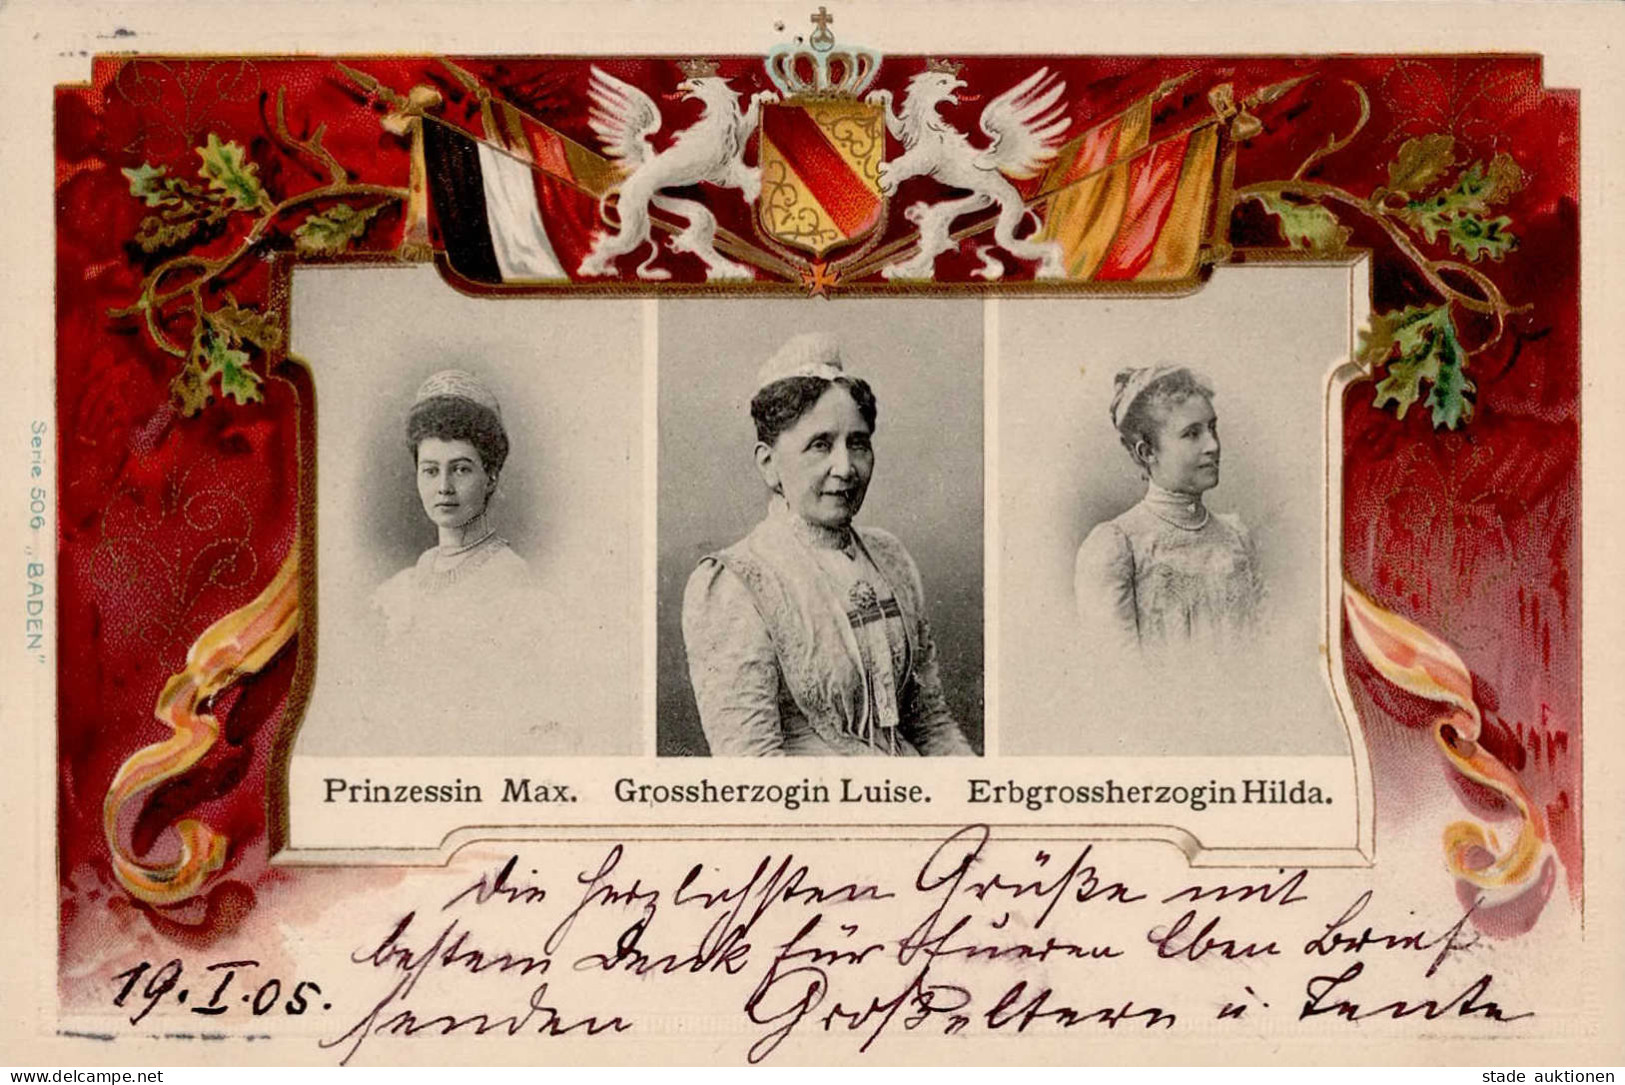 Serie 506 „BADEN"
Prinzessin Max. Grossherzogin Luise. Erbgrossherzogin Hilda.
die herzlichsten Grüße mit
bestem Dank für Eueren lben Brief
19.I.05. senden Großeltern u. Tante
Delcampe.net
stade auktionen